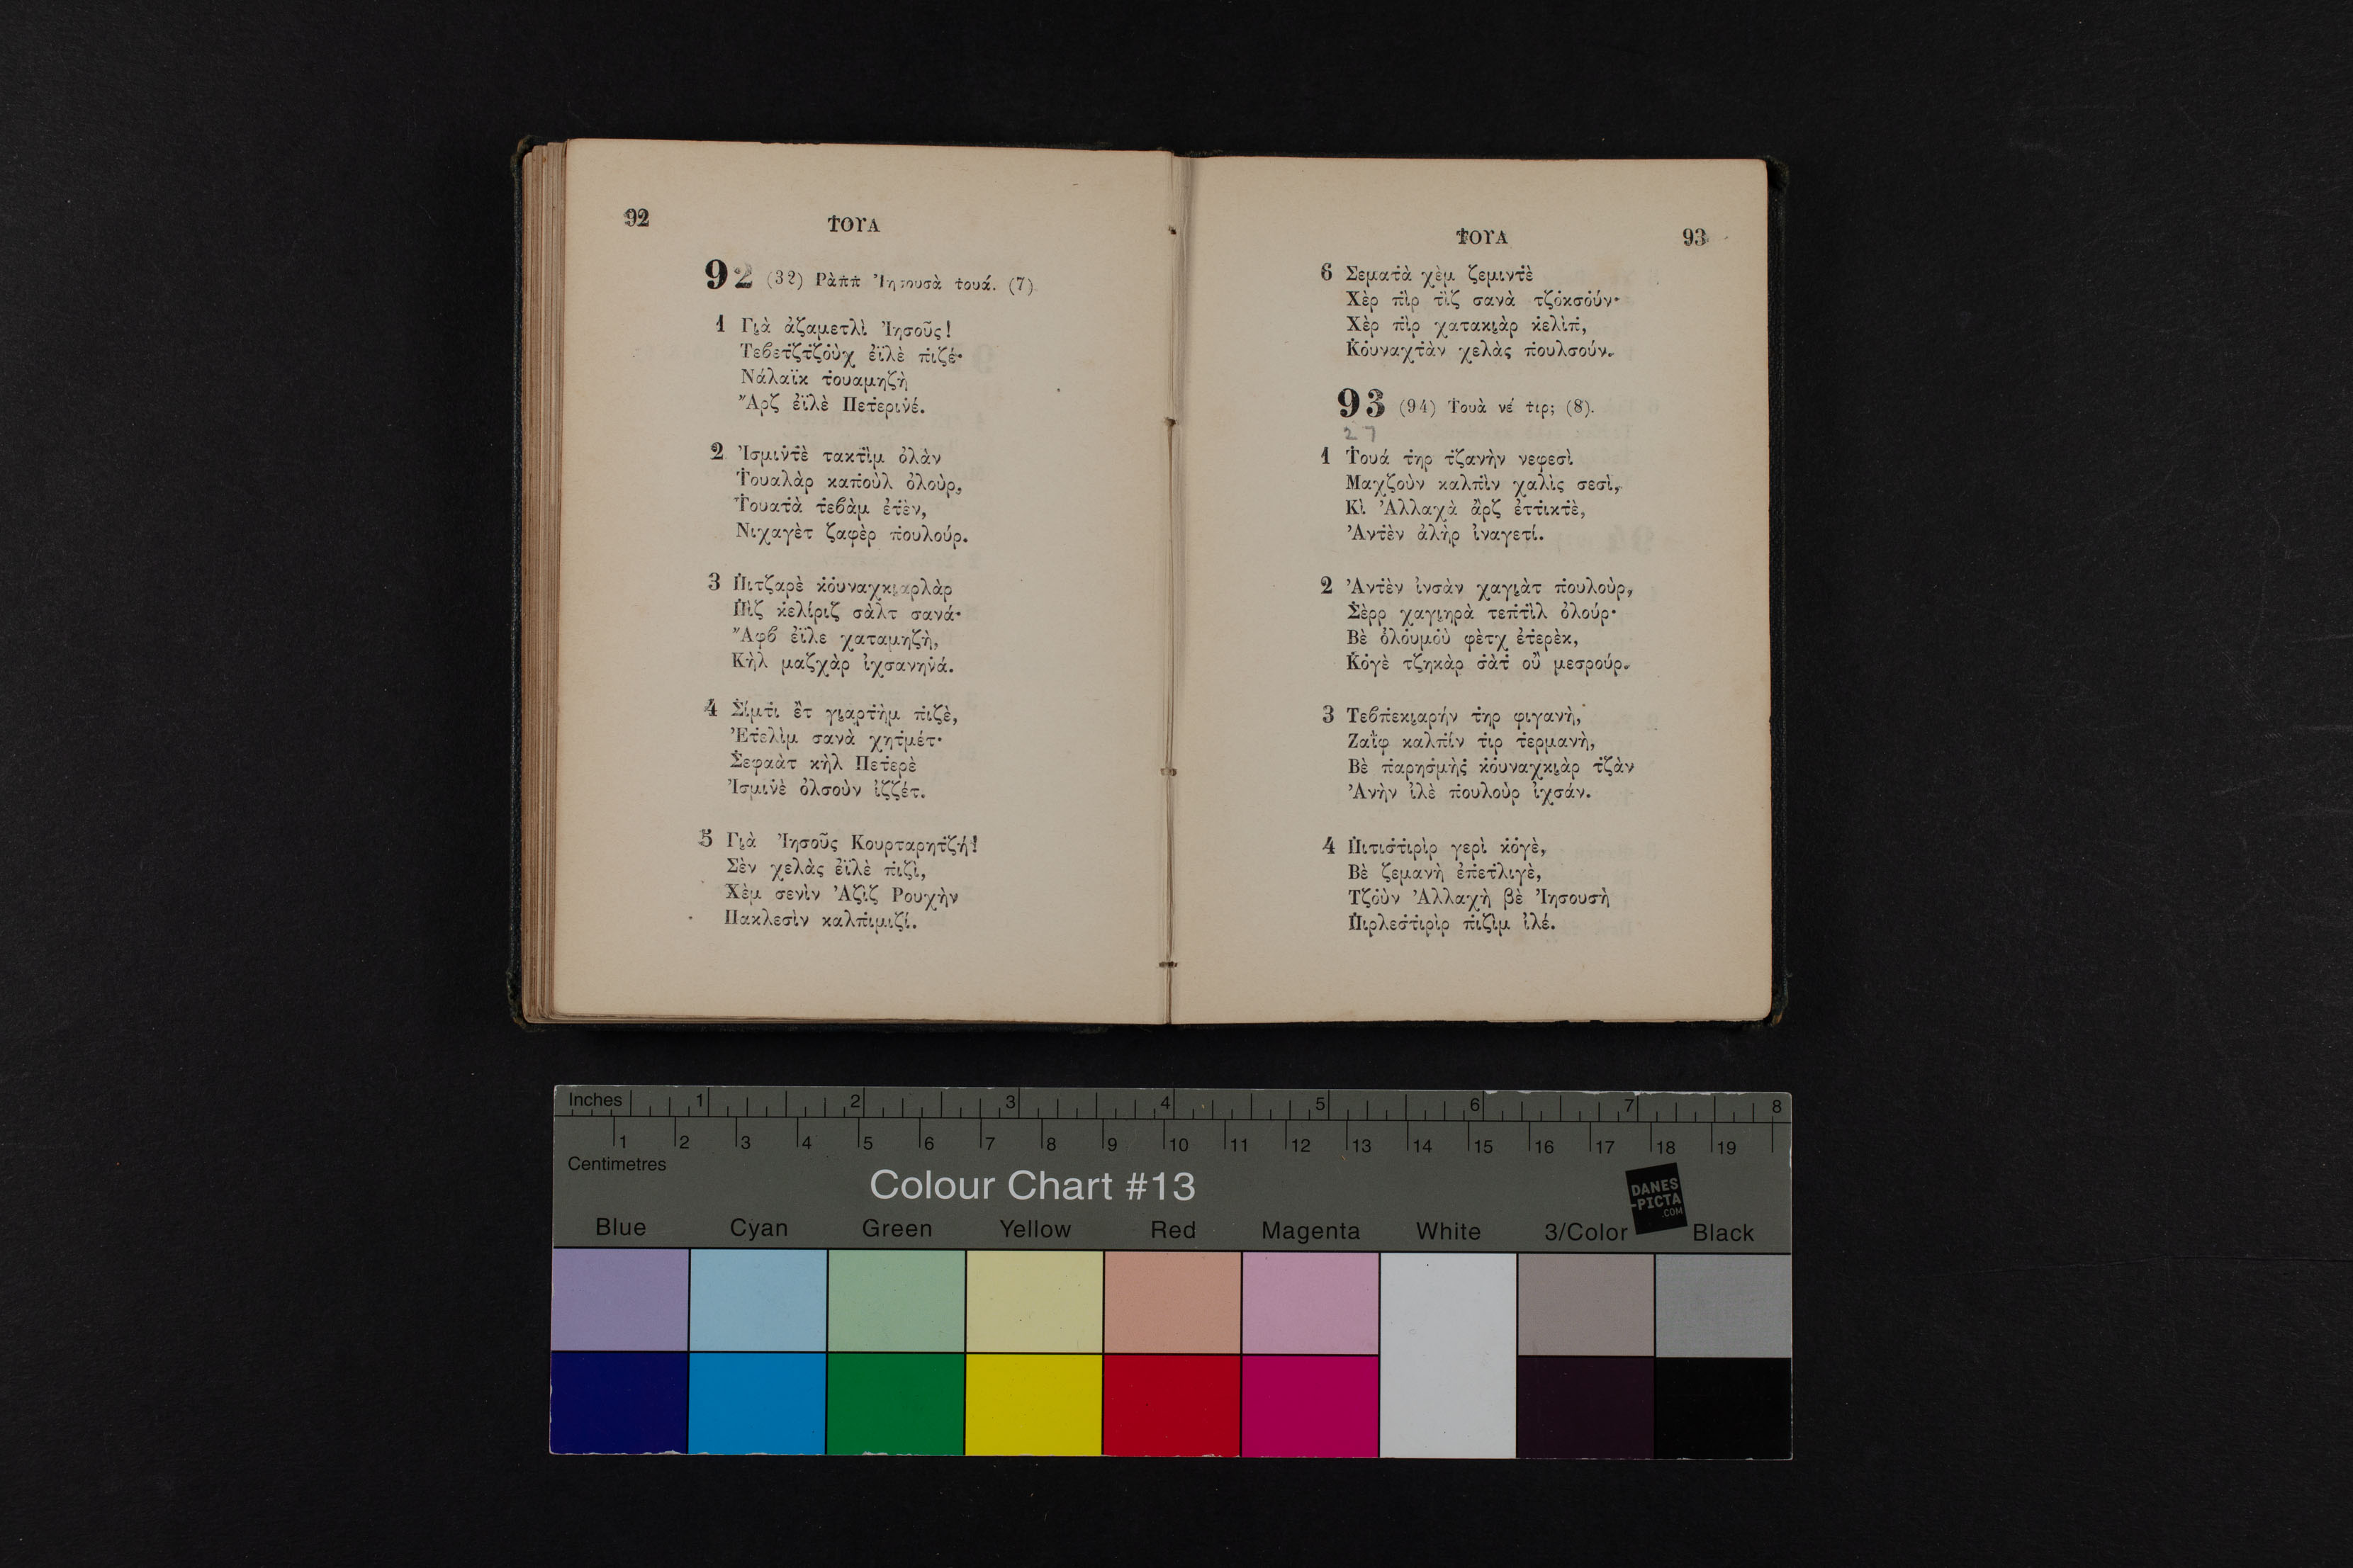 92
Τ̇ΟΥΑ
92 (32) Ρὰπ̇π̇ Ἰησουσὰ τ̇ουά. (7)
1 Γι̯ὰ ἀζαμετλὶ Ἰησοῦς!
Τεβετζ̇τζ̇οὺχ ἐϊλὲ π̇ιζέ·
Νάλαϊκ τ̇ουαμηζὴ
Ἄρζ ἐϊλὲ Πετ̇ερινέ.
2 Ἰσμιν̇τ̇ὲ τακτ̇ὶμ ὀλὰν
Τ̇ουαλὰρ καπ̇οὺλ ὀλοὺρ,
Τ̇ουατ̇ὰ τ̇εβὰμ ἐτ̇ὲν,
Νιχαγὲτ ζαφὲρ π̇ουλούρ.
3 Π̇ιτζαρὲ κ̇ο̇υναχκι̯αρλὰρ
Π̇ὶζ κ̇ελίριζ σὰλτ σανά·
Ἄφβ ἐϊλε χαταμηζὴ,
Κὴλ μαζχὰρ ἰχσανην̇ά.
4 Σ̇ίμτ̇ι ἒτ γι̯αρτ̇ὴμ π̇ιζὲ,
Ἐτ̇ελὶμ σανὰ χητ̇μέτ·
Σ̇εφαὰτ κὴλ Πετ̇ερὲ
Ἰσμιν̇ὲ ὀλσοὺν ἰζζέτ.
5 Γι̯ὰ Ἰησοῦς Κουρταρητζ̇ή!
Σὲν χελὰς ἐϊλὲ π̇ιζὶ,
Χὲμ σενὶν Ἀζὶζ Ρουχὴν
Πακλεσὶν καλπ̇ιμιζί.
93
Τ̇ΟΥΑ
6 Σεματ̇ὰ χὲμ ζεμιντ̇ὲ
Χὲρ π̇ὶρ τ̇ὶζ σανὰ τζ̇ο̇κσο̇ύν·
Χὲρ π̇ὶρ χατακι̯ὰρ κ̇ελὶπ̇,
Κ̇ο̇υναχτ̇ὰν χελὰς π̇ουλσούν.
93 (94) Τ̇ουὰ νέ τ̇ιρ; (8).
27
1 Τ̇ουά τ̇ηρ τζ̇ανὴν νεφεσὶ
Μαχζοὺν καλπ̇ὶν χαλὶς σεσὶ,
Κὶ Ἀλλαχὰ ἂρζ ἐττ̇ικτ̇ὲ,
Ἀντ̇ὲν ἀλὴρ ἰναγετί.
2 Ἀντ̇ὲν ἰνσὰν χαγι̯ὰτ π̇ουλοὺρ,
Σ̇ὲρρ χαγι̯ηρὰ τεπ̇τ̇ὶλ ὀλούρ·
Βὲ ὀ̇λο̇υμο̇ὺ φὲτχ ἐτ̇ερὲκ,
Κ̇ο̇γὲ τζηκὰρ σ̇ὰτ̇ οὒ μεσρούρ.
3 Τεβπ̇εκι̯αρήν τ̇ηρ φιγανὴ,
Ζαῒφ καλπ̇ίν τ̇ιρ τ̇ερμανὴ,
Βὲ π̇αρησ̇μὴς̇ κ̇ο̇υναχκι̯ὰρ τζ̇ὰν
Ἀνὴν ἰλὲ π̇ουλοὺρ ἰχσάν.
4 Π̇ιτισ̇τ̇ιρὶρ γερὶ κ̇ο̇γὲ,
Βὲ ζεμανὴ ἐπ̇ετ̇λιγὲ,
Τζ̇οὺν Ἀλλαχὴ βὲ Ἰησουσὴ
Π̇ιρλεσ̇τ̇ιρὶρ π̇ιζὶμ ἰλέ.
Inches 1 2 3 4 5 6 7 8
1 2 3 4 5 6 7 8 9 10 11 12 13 14 15 16 17 18 19
Centimetres
Colour Chart #13
DANES
-PICTA
.COM
Blue Cyan Green Yellow Red Magenta White 3/Color Black